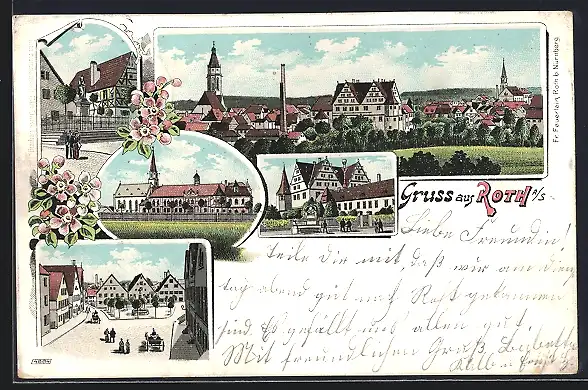 Fr. Feuerlein, Roth b. Nürnberg.
Gruss aus ROTH a/S.
Liebe Freundin!
Teile Dir mit, daß wir am
tag abend gut nach Roth gekommen
sind. Es gefällt uns allen gut.
Mit freundlichen Gruß, Babette